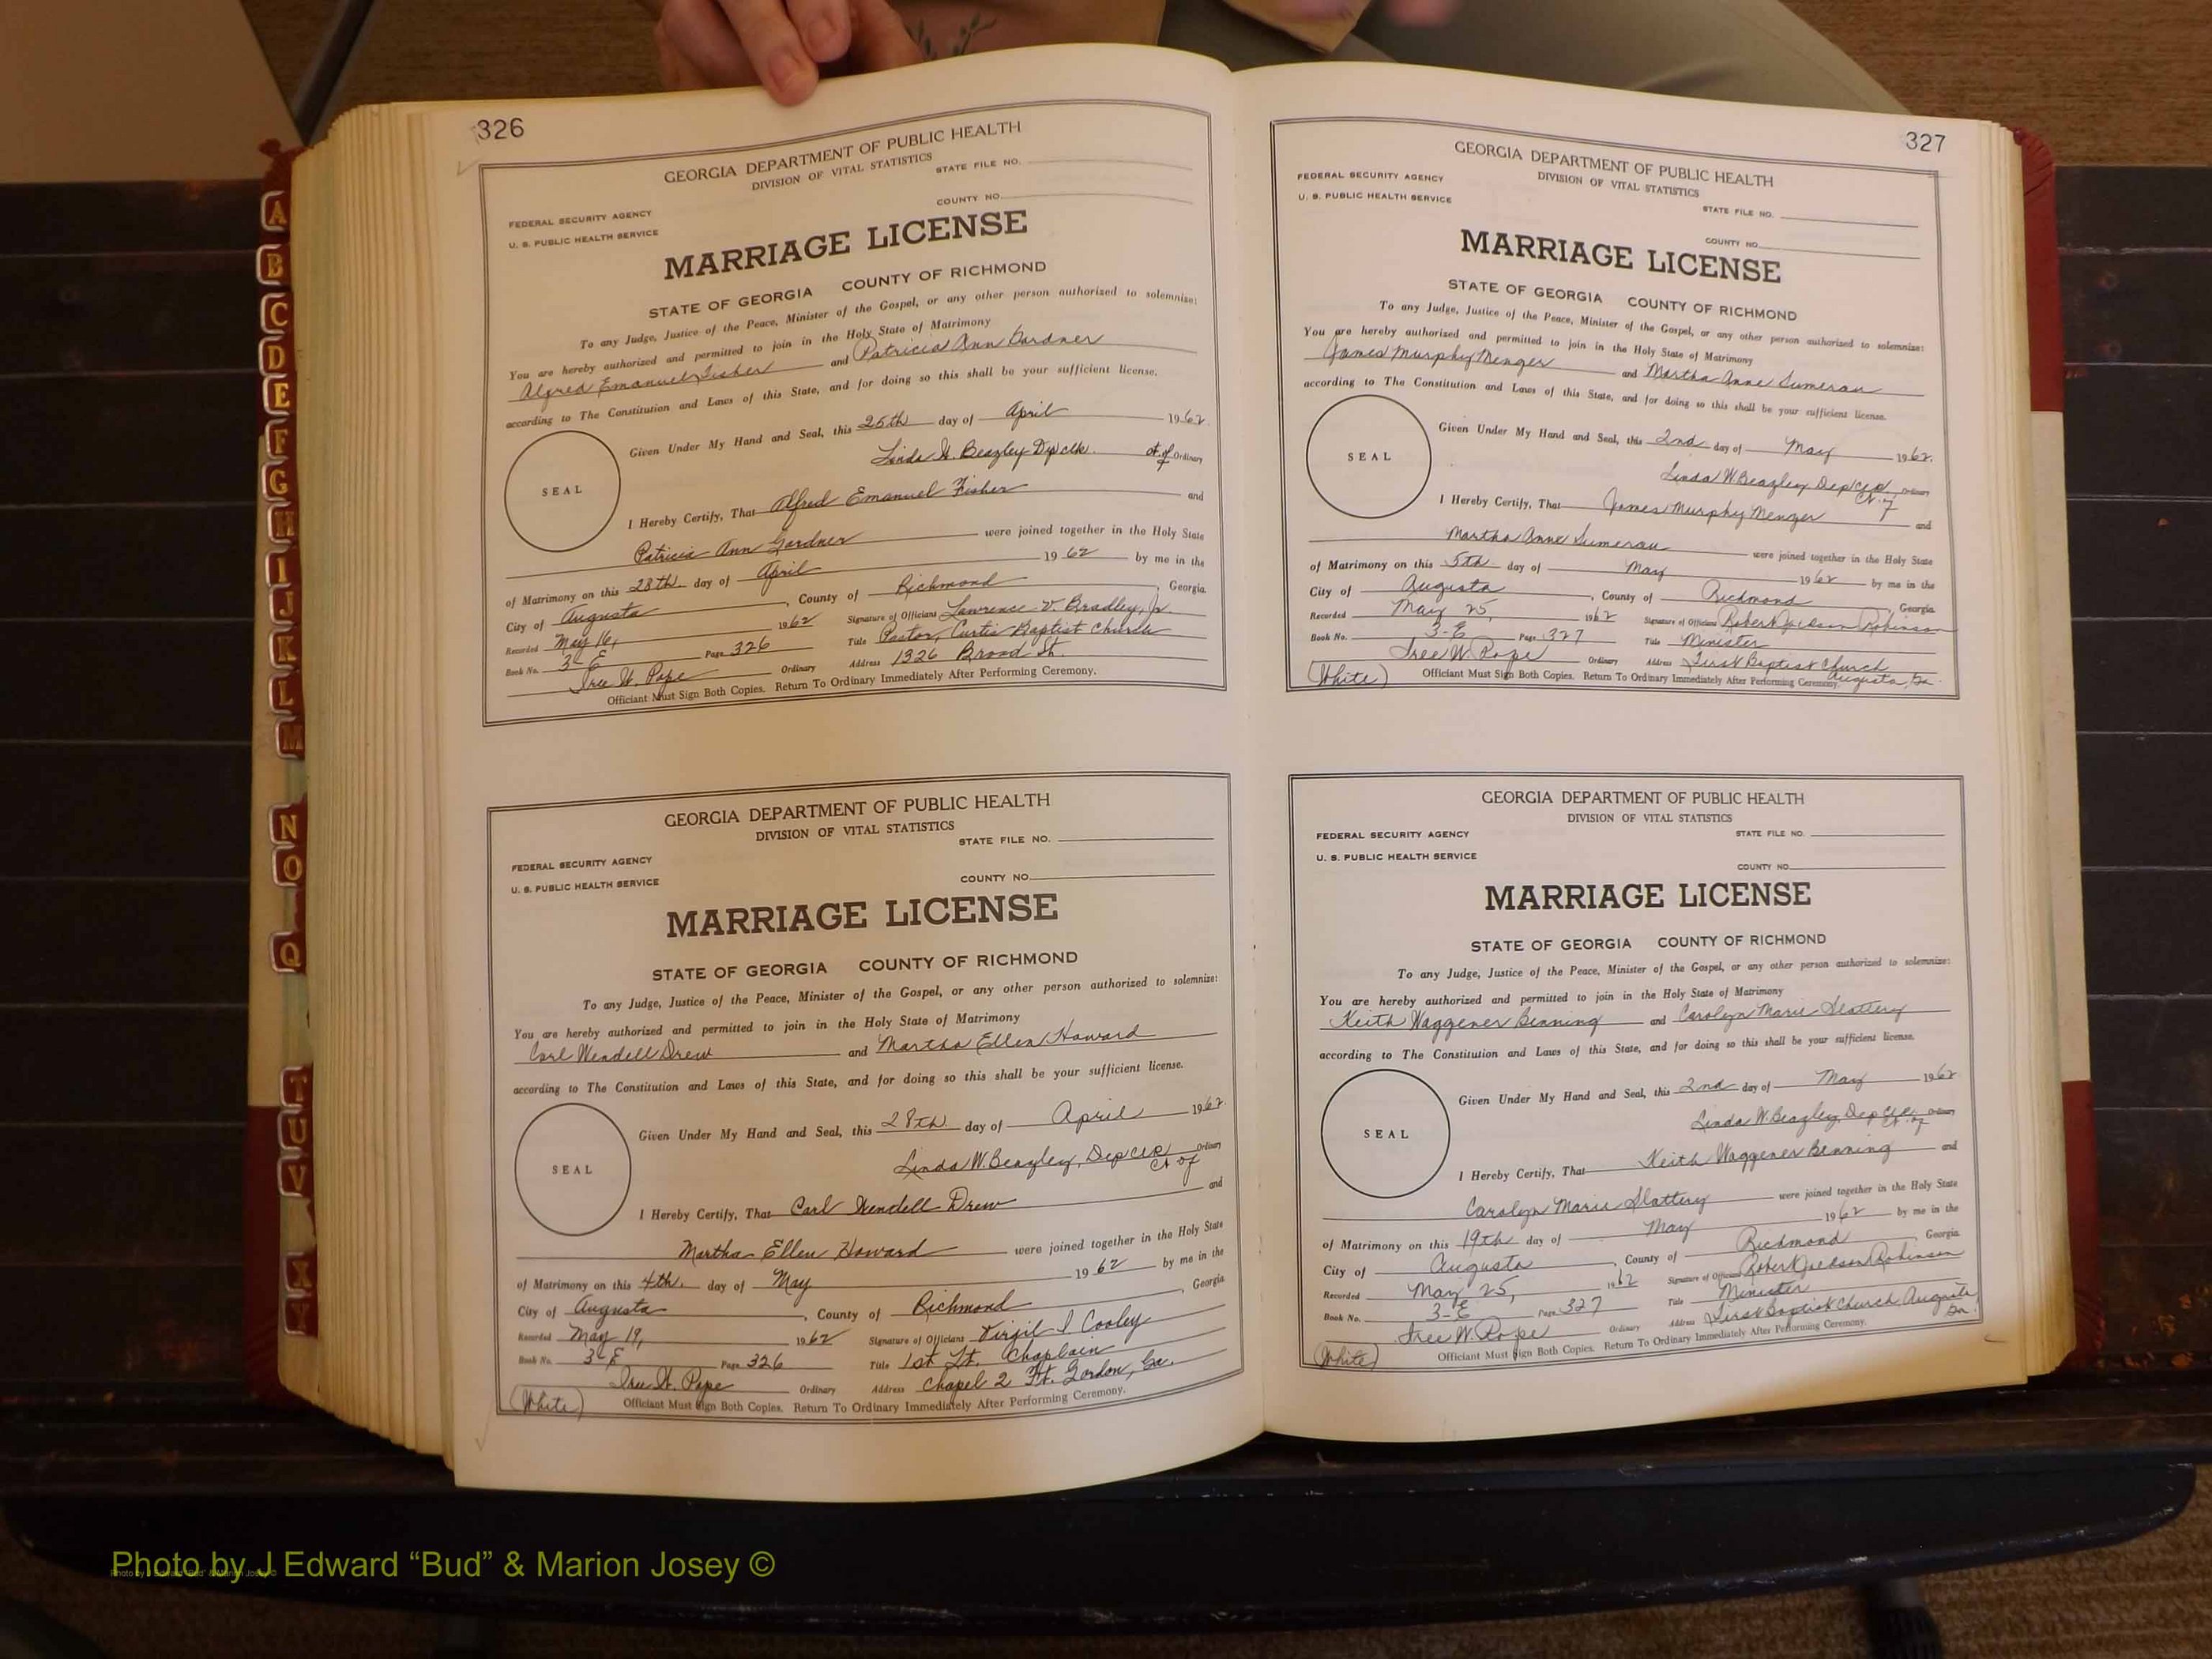 326
GEORGIA DEPARTMENT OF PUBLIC HEALTH
DIVISION OF VITAL STATISTICS
STATE FILE NO.
COUNTY NO.
FEDERAL SECURITY AGENCY
U. S. PUBLIC HEALTH SERVICE
MARRIAGE LICENSE
STATE OF GEORGIA COUNTY OF RICHMOND
To any Judge, Justice of the Peace, Minister of the Gospel, or any other person authorized to solemnize:
You are hereby authorized and permitted to join in the Holy State of Matrimony
Alfred Emanuel Fisher and Patricia Ann Gardner
according to The Constitution and Laws of this State, and for doing so this shall be your sufficient license.
Given Under My Hand and Seal, this 25th day of April 1962.
Linda W. Beazley Dep clk. ct. of Ordinary
SEAL
I Hereby Certify, That Alfred Emanuel Fisher and
Patricia Ann Gardner were joined together in the Holy State
of Matrimony on this 28th day of April 1962 by me in the
City of Augusta, County of Richmond, Georgia.
Recorded May 16, 1962 Signature of Officiant Lawrence V. Bradley, Jr
Book No. 3-E Page 326 Title Pastor, Curtis Baptist Church
Ordinary Address 1326 Broad St.
Officiant Must Sign Both Copies. Return To Ordinary Immediately After Performing Ceremony.
GEORGIA DEPARTMENT OF PUBLIC HEALTH
DIVISION OF VITAL STATISTICS
STATE FILE NO.
COUNTY NO.
FEDERAL SECURITY AGENCY
U. S. PUBLIC HEALTH SERVICE
MARRIAGE LICENSE
STATE OF GEORGIA COUNTY OF RICHMOND
To any Judge, Justice of the Peace, Minister of the Gospel, or any other person authorized to solemnize:
You are hereby authorized and permitted to join in the Holy State of Matrimony
Carl Wendell Drew and Martha Ellen Howard
according to The Constitution and Laws of this State, and for doing so this shall be your sufficient license.
Given Under My Hand and Seal, this 28th day of April 1962.
Linda W. Beazley, Dep Clk Ordinary
Ct of
SEAL
I Hereby Certify, That Carl Wendell Drew and
Martha Ellen Howard were joined together in the Holy State
of Matrimony on this 4th. day of May 1962 by me in the
City of Augusta, County of Richmond, Georgia
Recorded May 19, 1962 Signature of Officiant Virgil I Cooley
Book No. 3-E Page 326 Title 1st Lt. Chaplain
Ordinary Address Chapel 2 Ft. Gordon, Ga.
(White) Officiant Must Sign Both Copies. Return To Ordinary Immediately After Performing Ceremony.
327
GEORGIA DEPARTMENT OF PUBLIC HEALTH
DIVISION OF VITAL STATISTICS
FEDERAL SECURITY AGENCY
U. S. PUBLIC HEALTH SERVICE
STATE FILE NO.
COUNTY NO.
MARRIAGE LICENSE
STATE OF GEORGIA COUNTY OF RICHMOND
To any Judge, Justice of the Peace, Minister of the Gospel, or any other person authorized to solemnize:
You are hereby authorized and permitted to join in the Holy State of Matrimony
James Murphy Menger and Martha Anne Sumerau
according to The Constitution and Laws of this State, and for doing so this shall be your sufficient license.
Given Under My Hand and Seal, this 2nd day of May 1962.
Linda W. Beazley Dep Clk Ordinary
Ct. of
SEAL
I Hereby Certify, That James Murphy Menger and
Martha Anne Sumerau were joined together in the Holy State
of Matrimony on this 5th day of May 1962 by me in the
City of Augusta, County of Richmond, Georgia
Recorded May 25, 1962 Signature of Officiant Robert Jackson Robinson
Book No. 3-E Page 327 Title Minister
Ordinary Address First Baptist Church
Augusta, Ga.
(White) Officiant Must Sign Both Copies. Return To Ordinary Immediately After Performing Ceremony.
GEORGIA DEPARTMENT OF PUBLIC HEALTH
DIVISION OF VITAL STATISTICS
FEDERAL SECURITY AGENCY
STATE FILE NO.
U. S. PUBLIC HEALTH SERVICE
COUNTY NO.
MARRIAGE LICENSE
STATE OF GEORGIA COUNTY OF RICHMOND
To any Judge, Justice of the Peace, Minister of the Gospel, or any other person authorized to solemnize:
You are hereby authorized and permitted to join in the Holy State of Matrimony
Keith Waggener Benning and Carolyn Marie Slattery
according to The Constitution and Laws of this State, and for doing so this shall be your sufficient license.
Given Under My Hand and Seal, this 2nd day of May 1962
Linda W. Beazley, Dep Clk. Ordinary
Ct. of
SEAL
I Hereby Certify, That Keith Waggener Benning and
Carolyn Marie Slattery were joined together in the Holy State
of Matrimony on this 19th day of May 1962 by me in the
City of Augusta, County of Richmond, Georgia
Recorded May 25, 1962 Signature of Officiant Robert Jackson Robinson
Book No. 3-E Page 327 Title Minister
Ordinary Address First Baptist Church, Augusta
Ga.
(White) Officiant Must Sign Both Copies. Return To Ordinary Immediately After Performing Ceremony.
A
B
C
D
E
F
G
H
I
J
K
L
M
N
O
Q
T
U
V
X
Y
Photo by J Edward “Bud” & Marion Josey ©
Photo by J Edward "Bud" & Marion Josey ©